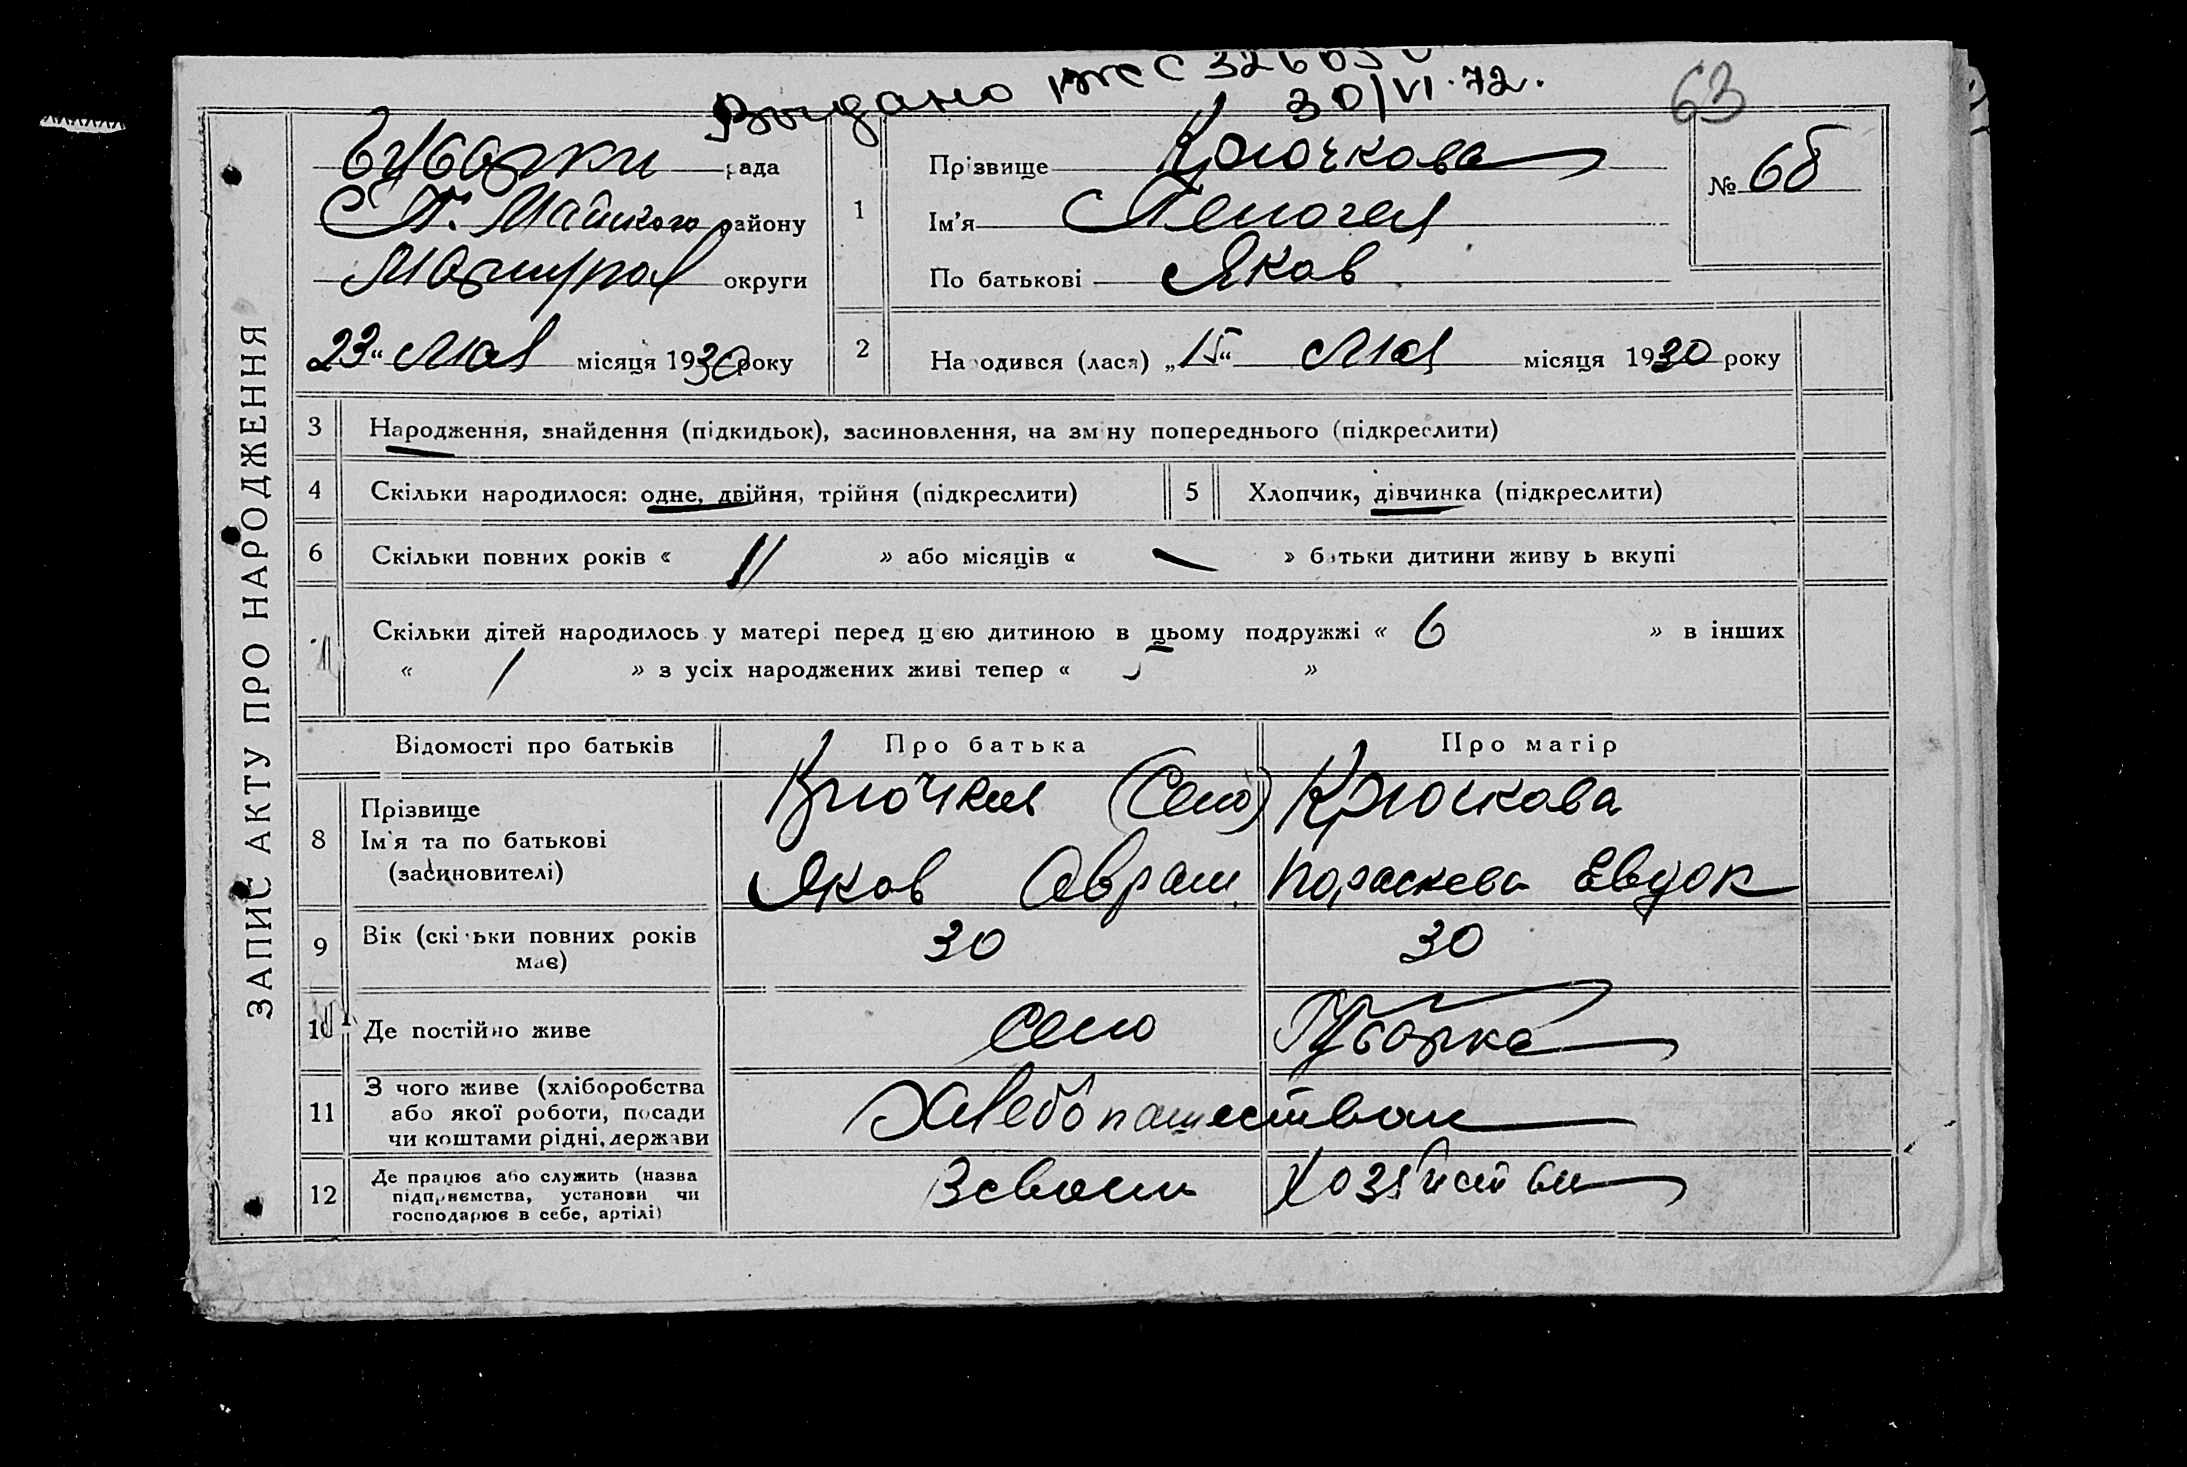 Видано
30/VI.72.
63
рада
району
округи
23 " мая місяця 1930 року
ЗАПИС АКТУ ПРО НАРОДЖЕННЯ
1
Прізвище Крючкова
Ім'я Пелогея
По батькові Яков
№ 66
2
Народився (лася) „15" мая місяця 1930 року
3 Народження, знайдення (підкидьок), засиновлення, на зміну попереднього (підкреслити)
4 Скільки народилося: одне, двійня, трійня (підкреслити)
5 Хлопчик, дівчинка (підкреслити)
6 Скільки повних років « 11 » або місяців « — » батьки дитини живуть вкупі
Скільки дітей народилось у матері перед цією дитиною в цьому подружжі « 6 » в інших
« / » з усіх народжених живі тепер « »
Відомості про батьків Про батька Про матір
8 Прізвище
Ім'я та по батькові
(засиновителі)
(село) Крючкова
Яков Аврам Параскева Евдок
9 Вік (скільки повних років
має)
30 30
10 Де постійно живе село
11 З чого живе (хліборобства
або якої роботи, посади
чи коштами рідні, держави
Хлебопашеством
12 Де працює або служить (назва
підприємства, установи чи
господарює в себе, артілі)